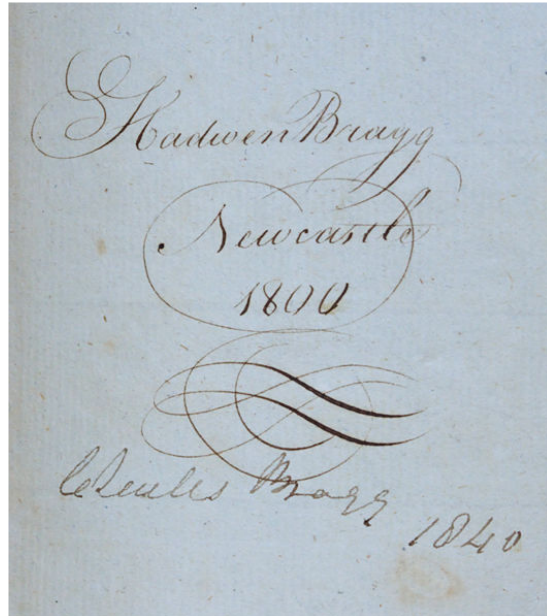 Hadwen Bragg
Newcastle
1800
Charles Bragg
1840